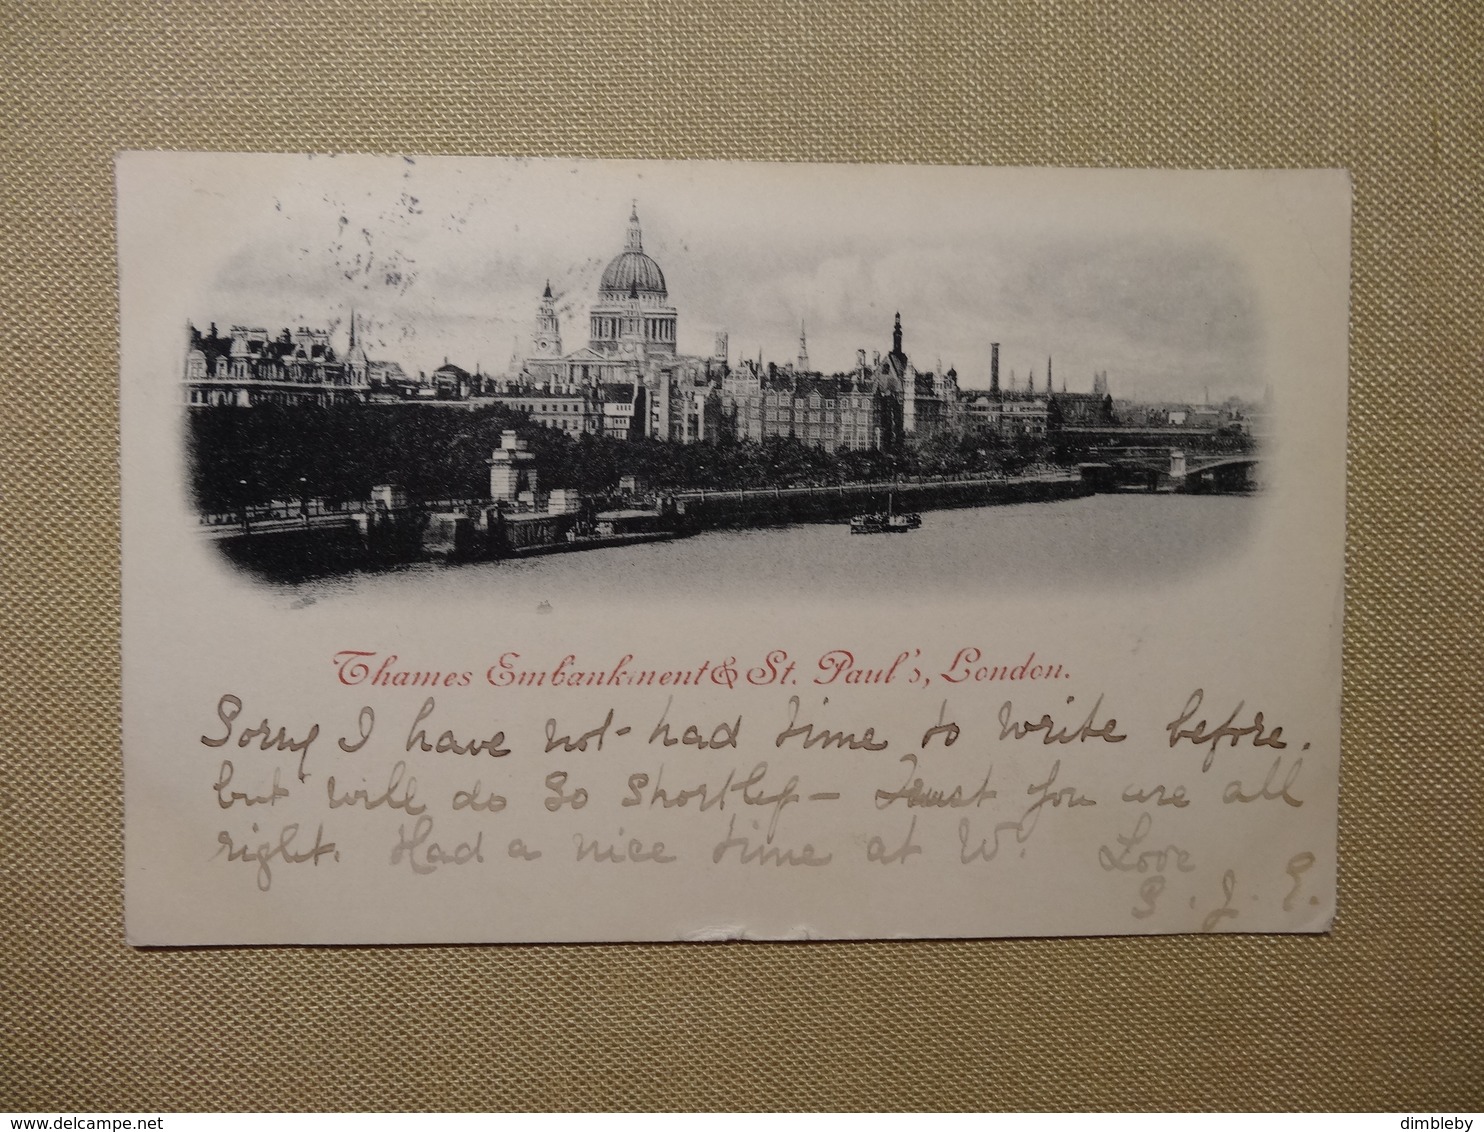 Thames Embankment & St. Paul's, London.
Sorry I have not had time to write before.
but will do so shortly – Trust you are all
right. Had a nice time at W. Love
J. E.
delcampe.net
dimbleby